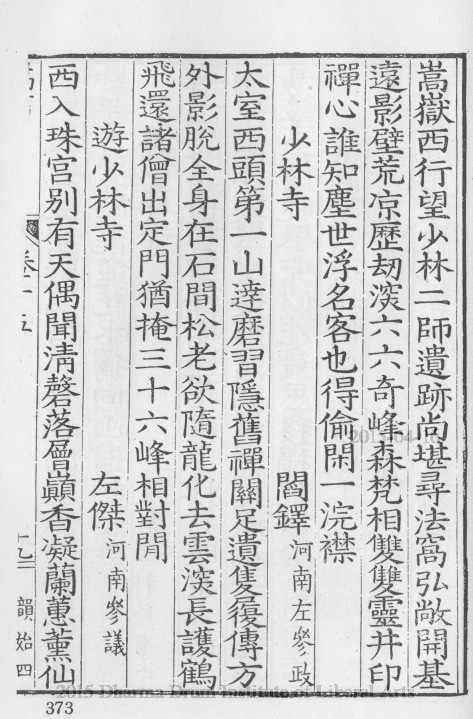 嵩嶽西行望少林二師遺跡尚堪尋法窩弘敞開基
遠影壁荒凉歷劫深六六奇峰森梵相雙雙靈井印
禪心誰知塵世浮名客也得偷閑一浣襟
少林寺 閻鐸 河南左參政
太室西頭第一山達磨習隱舊禪關足遺隻履傳方
外影脫全身在石間松老欲隨龍化去雲深長護鶴
飛還諸僧出定門猶掩三十六峰相對閒
遊少林寺 左傑 河南參議
西入珠宮別有天偶聞清磬落層巔香凝蘭蕙薰仙
卷十五
韻始四
2015 Dharma Drum Institute of Liberal Arts
373